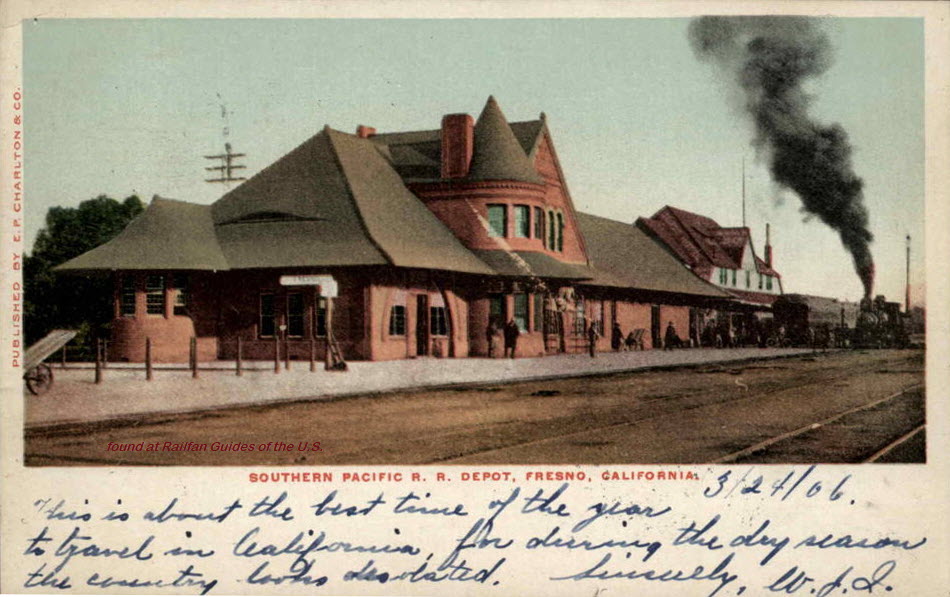 PUBLISHED BY E. P. CHARLTON & CO.
found at Railfan Guides of the U.S.
SOUTHERN PACIFIC R. R. DEPOT, FRESNO, CALIFORNIA.
3/24/06.
This is about the best time of the year
to travel in California, for during the dry season
the country looks desolated. Sincerely, W. J. I.